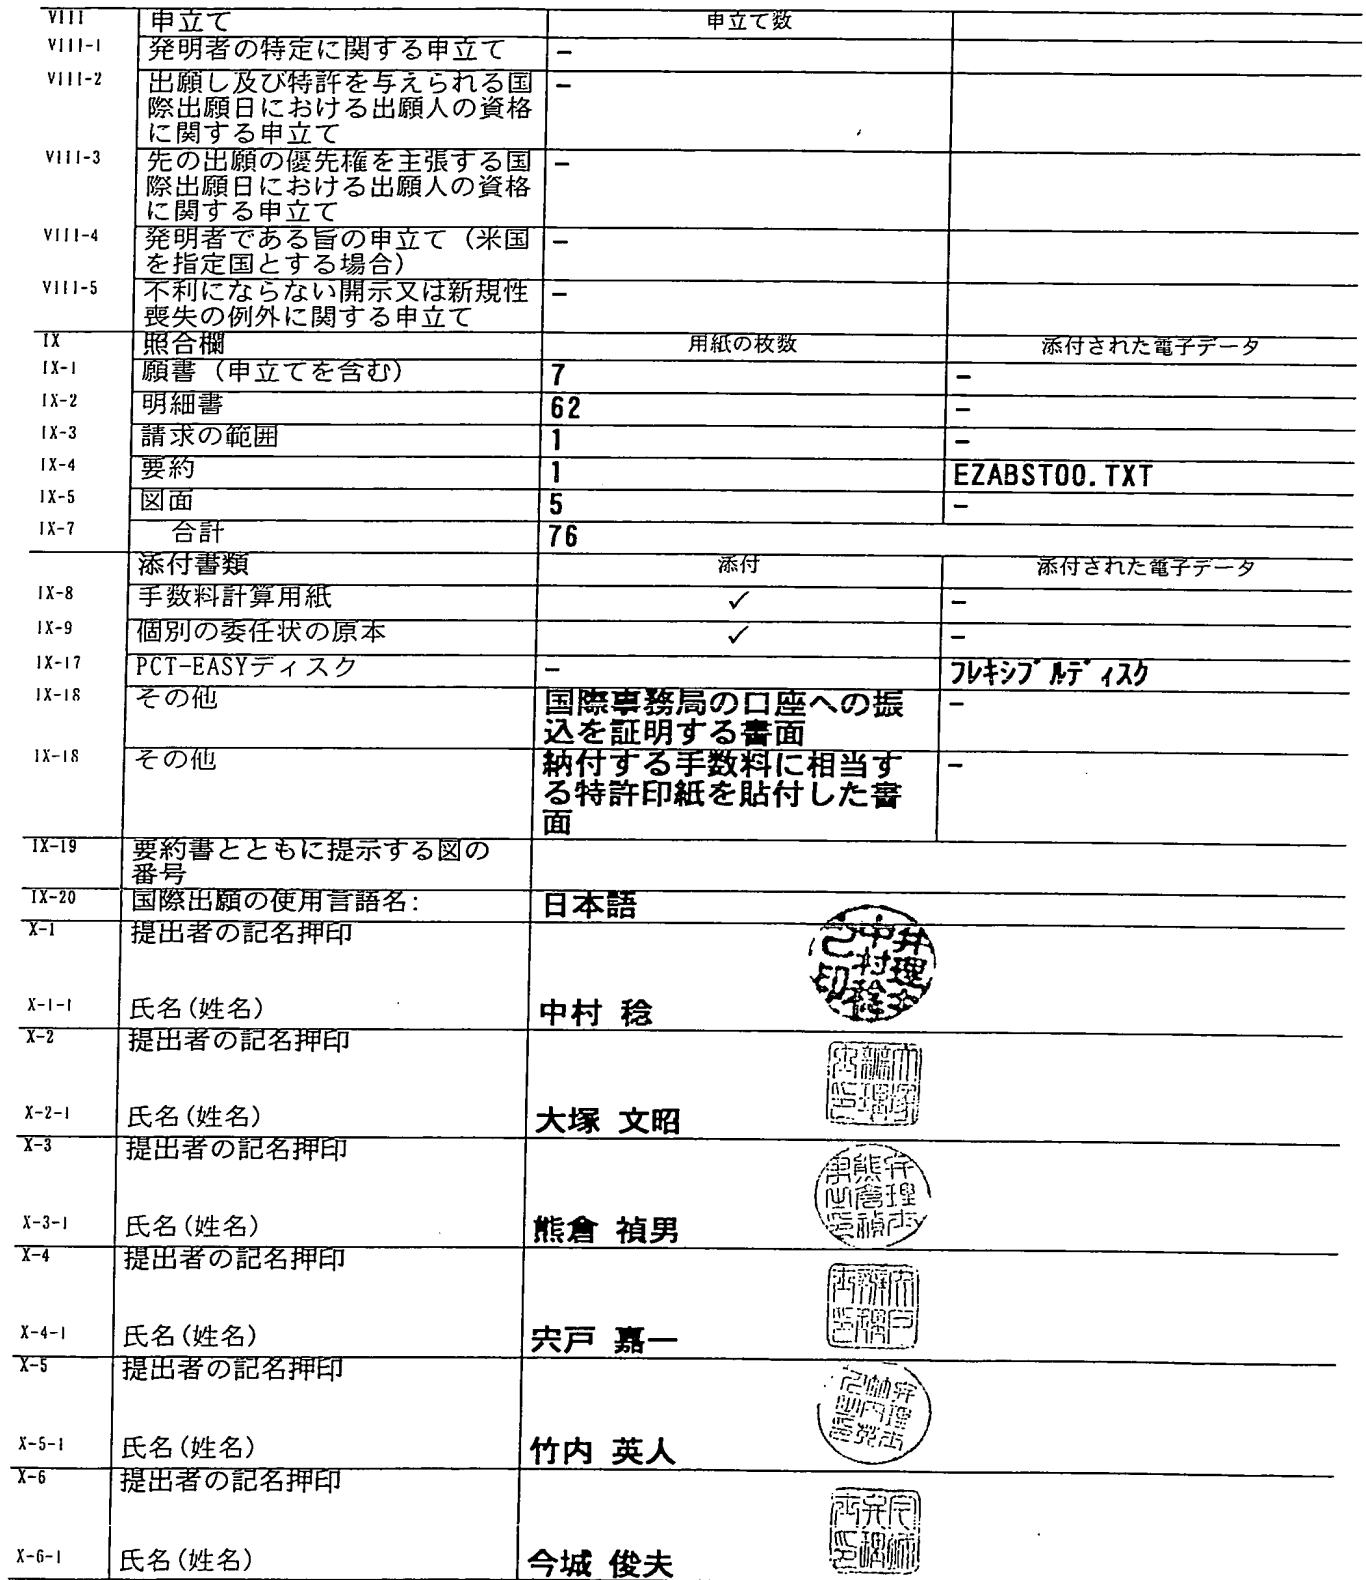 VIII 申立て 申立て数
VIII-1 発明者の特定に関する申立て –
VIII-2 出願し及び特許を与えられる国 –
際出願日における出願人の資格
に関する申立て
VIII-3 先の出願の優先権を主張する国 –
際出願日における出願人の資格
に関する申立て
VIII-4 発明者である旨の申立て（米国 –
を指定国とする場合）
VIII-5 不利にならない開示又は新規性 –
喪失の例外に関する申立て
IX 照合欄 用紙の枚数 添付された電子データ
IX-1 願書（申立てを含む） 7 –
IX-2 明細書 62 –
IX-3 請求の範囲 1 –
IX-4 要約 1 EZABST00.TXT
IX-5 図面 5 –
IX-7 合計 76
添付書類 添付 添付された電子データ
IX-8 手数料計算用紙 ✓ –
IX-9 個別の委任状の原本 ✓ –
IX-17 PCT-EASYディスク – フレキシブルディスク
IX-18 その他 国際事務局の口座への振 –
込を証明する書面
IX-18 その他 納付する手数料に相当す –
る特許印紙を貼付した書
面
IX-19 要約書とともに提示する図の
番号
IX-20 国際出願の使用言語名: 日本語
X-1 提出者の記名押印
X-1-1 氏名(姓名) 中村 稔
X-2 提出者の記名押印
X-2-1 氏名(姓名) 大塚 文昭
X-3 提出者の記名押印
X-3-1 氏名(姓名) 熊倉 禎男
X-4 提出者の記名押印
X-4-1 氏名(姓名) 宍戸 嘉一
X-5 提出者の記名押印
X-5-1 氏名(姓名) 竹内 英人
X-6 提出者の記名押印
X-6-1 氏名(姓名) 今城 俊夫